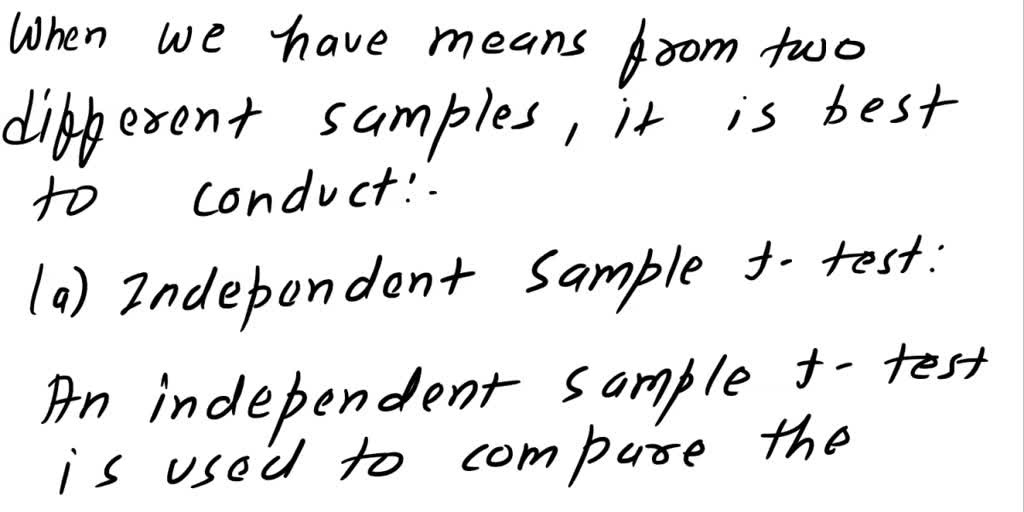 When we have means from two
different samples, it is best
to conduct:-
(a) Independent Sample t-test:
An independent sample t-test
is used to compare the